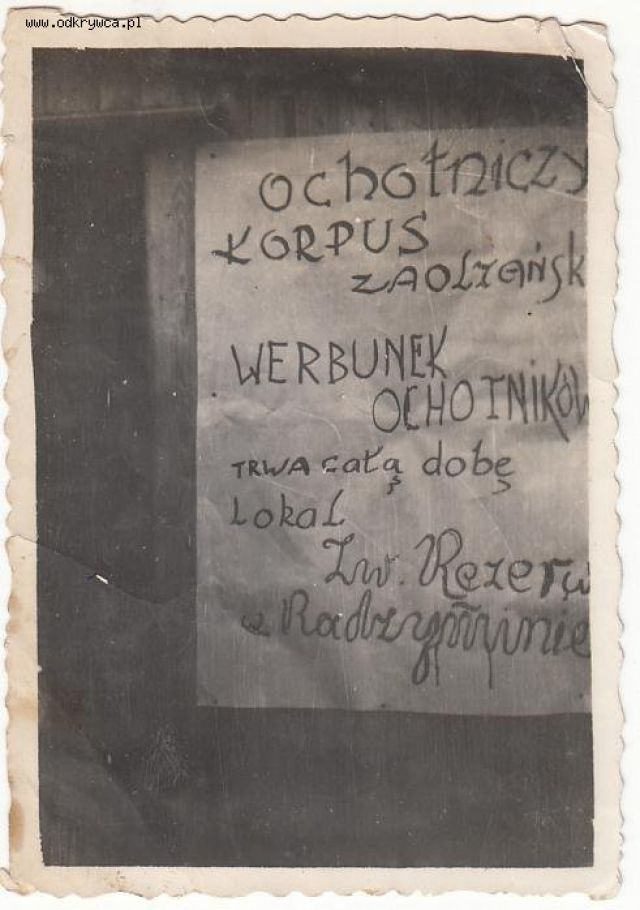 www.odkrywca.pl
OCHOTNICZY
KORPUS
ZAOLZAŃSK
WERBUNEK
OCHOTNIKÓW
TRWA całą dobę
LOKAL
Zw. Rezerw
w Radzyminie